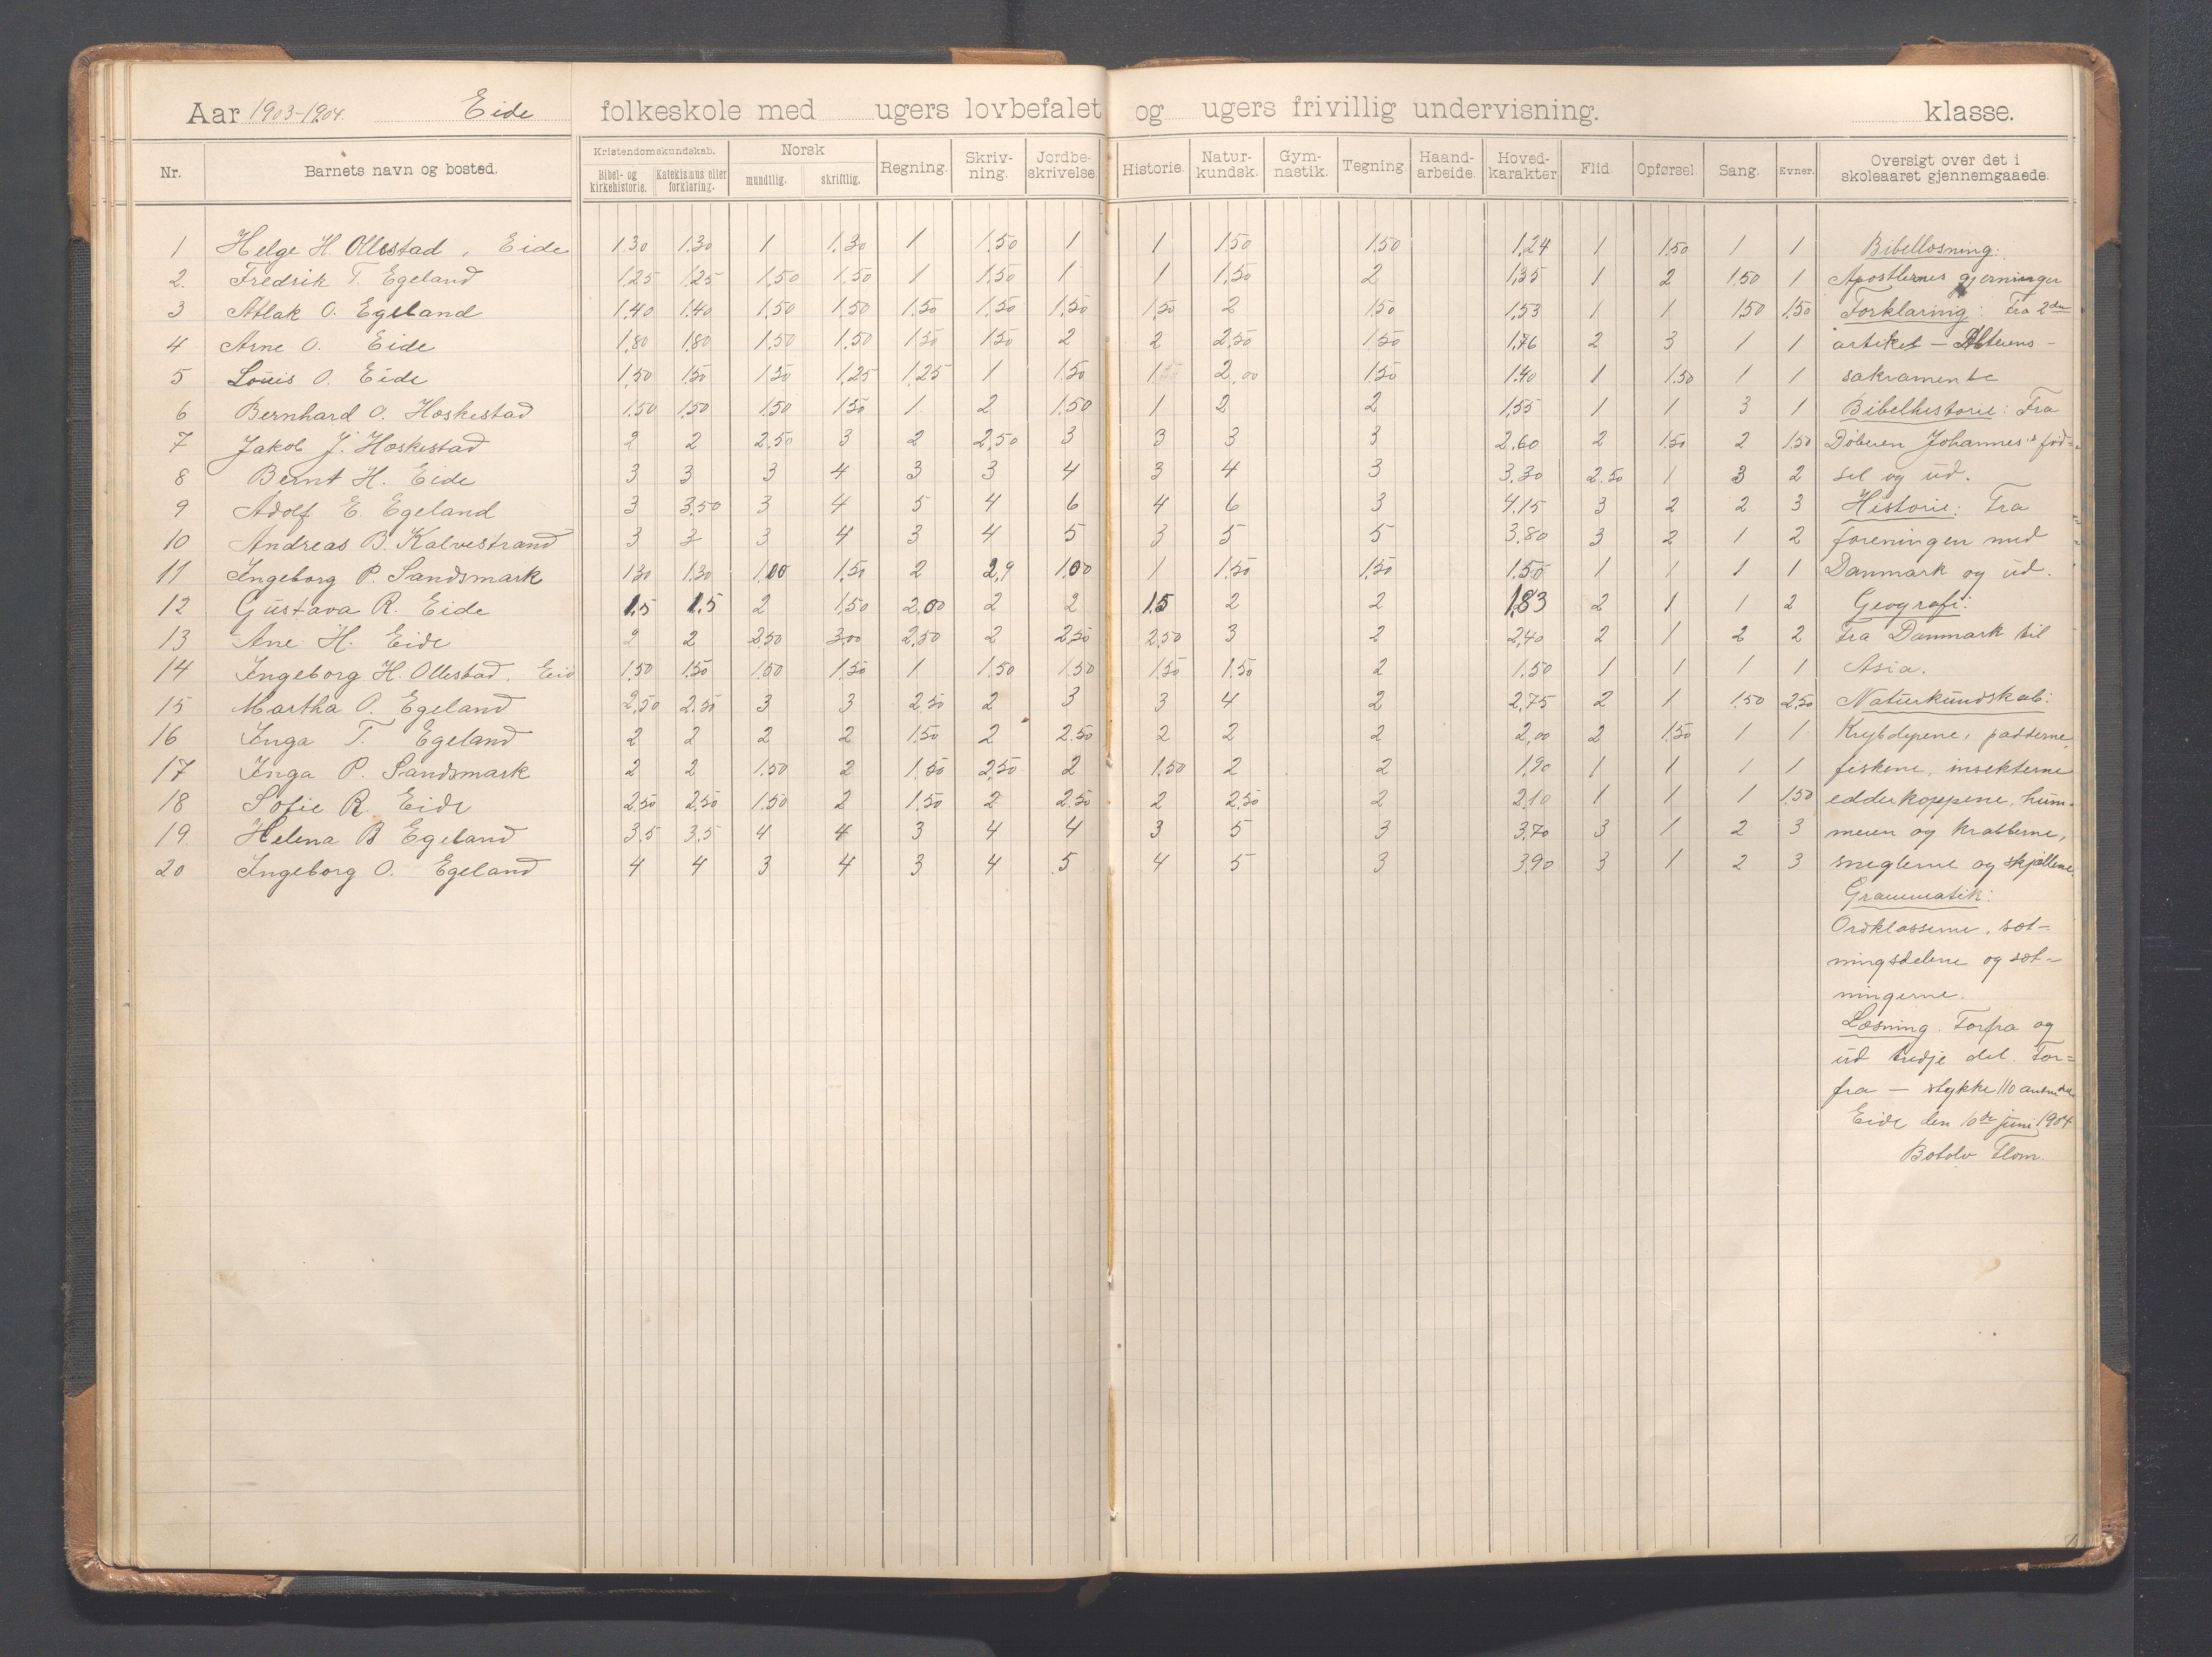 Aar 1903-1904. Eide folkeskole med ugers lovbefalet og ugers frivillig undervisning. klasse.
Nr. Barnets navn og bosted. Kristendomskundskab. Bibel- og kirkehistorie. Katekismus eller forklaring. Norsk mundtlig. skriftlig. Regning. Skriv-ning. Jordbe-skrivelse. Historie. Natur-kundsk. Gym-nastik. Tegning. Haand-arbeide. Hoved-karakter Flid. Opførsel. Sang. Evner. Oversigt over det i skoleaaret gjennemgaaede.
1 Helge H. Ollestad, Eide 1.30 1.30 1 1.30 1 1.50 1 1 1.50 1.50 1.24 1 1.50 1 1 Bibellæsning:
2. Fredrik T. Egeland 1.25 1.25 1.50 1.50 1 1.50 1 1 1.50 2 1.35 1 2 1.50 1 Apostlernes gjerninger
3 Atlak O. Egeland 1.40 1.40 1.50 1.50 1.50 1.50 1.50 1.50 2 1.50 1.53 1 1 1.50 1.50 Forklaring: Fra 2den
4 Arne O. Eide 1.80 1.80 1.50 1.50 1.50 1.50 2 2 2.50 1.50 1.76 2 3 1 1 artikel — Alterens-
5 Louis O. Eide 1.50 1.50 1.50 1.25 1.25 1 1.50 1.50 2.00 1.50 1.40 1 1.50 1 1 sakramente
6 Bernhard O. Hoskestad 1.50 1.50 1.50 1.50 1 2 1.50 1 2 2 1.55 1 1 3 1 Bibelhistorie: Fra
7 Jakob J. Hoskestad 2 2 2.50 3 2 2,50 3 3 3 3 2.60 2 1.50 2 1.50 Døberen Johannes's fød-
8 Bernt H. Eide 3 3 3 4 3 3 4 3 4 3 3.30 2.50 1 3 2 sel og ud.
9 Adolf E. Egeland 3 3.50 3 4 5 4 6 4 6 3 4.15 3 2 2 3 Historie: Fra
10 Andreas B. Kalvestrand 3 3 3 4 3 4 5 3 5 5 3.80 3 2 1 2 foreningen med
11 Ingeborg P. Sandsmark 1.30 1.30 1.00 1.50 2 2,9 1.00 1 1.50 1.50 1.50 1 1 1 1 Danmark og ud.
12 Gustava R. Eide 1.5 1.5 2 1.50 2.00 2 2 1.5 2 2 1.83 2 1 1 2 Geografi:
13 Ane H. Eide 2 2 2.50 3.00 2.50 2 2.50 2.50 3 2 2.40 2 1 2 2 Fra Danmark til
14 Ingeborg H. Ollestad. Eid 1.50 1.50 1.50 1.50 1 1.50 1.50 1.50 1.50 2 1.50 1 1 1 1 Asia.
15 Martha O. Egeland 2,50 2.50 3 3 2.50 2 3 3 4 2 2,75 2 1 1.50 2.50 Naturkundskab:
16 Inga T. Egeland 2 2 2 2 1.50 2 2.50 2 2 2 2,00 2 1.50 1 1 Krybdyrene, padderne,
17 Inga P. Sandsmark 2 2 1.50 2 1.50 2,50 2 1.50 2 2 1.90 1 1 1 1 fiskene, insekterne
18 Sofie R. Eide 2.50 2.50 1.50 2 1.50 2 2.50 2 2.50 2 2.10 1 1 1 1.50 edderkoppene, hum-
19. Helena B Egeland 3.5 3.5 4 4 3 4 4 3 5 3 3.70 3 1 2 3 meren og krabberne,
20 Ingeborg O. Egeland 4 4 3 4 3 4 5 4 5 3 3.90 3 1 2 3 sneglerne og skjællene.
Grammatik:
Ordklasserne, sæt-
ningsdelene og sæt-
ningerne.
Læsning. Forfra og
ud tredje del. For-
fra — stykke 110
Eide den 10de juni 1904
Botolv Flom.